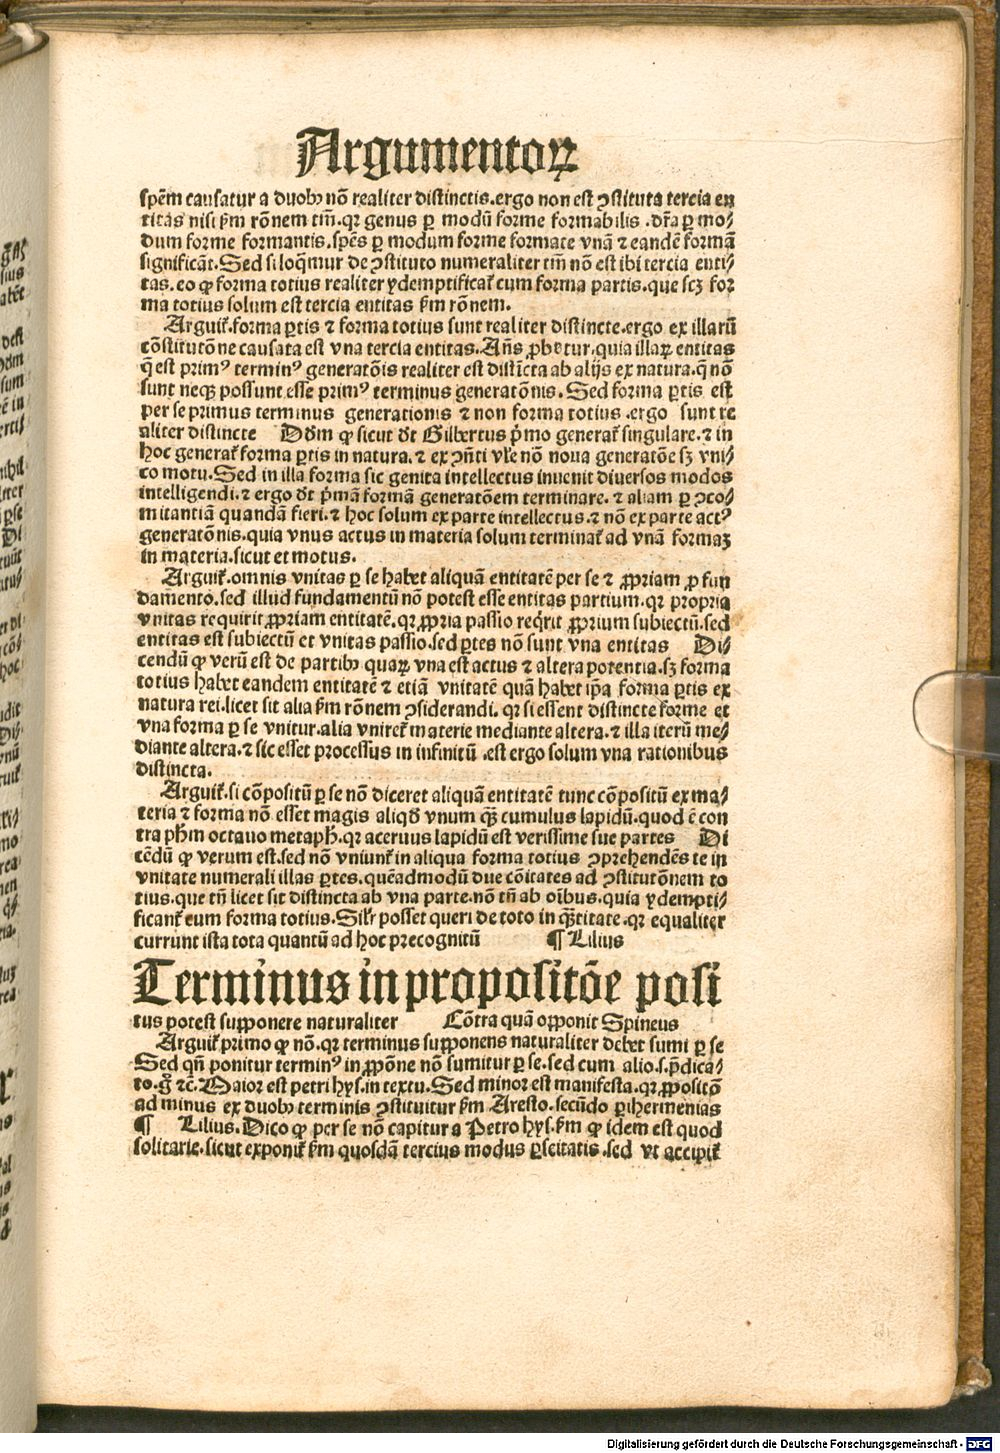 Argumentoꝝ
spēm causatur a duobꝰ nō realiter distinctis.ergo non est ꝯstituta tercia en
titas nisi ẜm rōnem tm̄.qr genus ꝑ modū forme formabilis .dr̄a ꝑ mo⸗
dum forme formantis.spēs ꝑ modum forme formate vnā ⁊ eandē formā
significāt.Sed si loq̄mur de ꝯstituto numeraliter tm̄ nō est ibi tercia enti⸗
tas.eo ꝙ forma totius realiter ydemptificat᷑ cum forma partis.que scꝫ for
ma totius solum est tercia entitas ẜm rōnem.
Arguit᷑.forma ꝑtis ⁊ forma totius sunt realiter distincte.ergo ex illarū
cōstitutōne causata est vna tercia entitas.Añs ꝓbetur.quia illaꝝ entitas
q̄ est primꝰ terminꝰ generatōis realiter est distīcta ab alijs ex natura.q̄ nō
sunt neqꝫ possunt esse primꝰ terminus generatōnis. Sed forma ꝑtis est
per se primus terminus generationis ⁊ non forma totius .ergo sunt re
aliter distincte Dd̄m ꝙ sicut dt̄ Gilbertus p̄mo generat᷑ singulare.⁊ in
hoc generat᷑ forma ꝑtis in natura.⁊ ex ꝯn̄ti vl̄e nō noua generatōe sꝫ vni⸗
co motu.Sed in illa forma sic genita intellectus inuenit diuersos modos
intelligendi.⁊ ergo dt̄ p̄mā formā generatōem terminare.⁊ aliam ꝑ ꝯco⸗
mitantiā quandā fieri.⁊ hoc solum ex parte intellectus.⁊ nō ex parte actꝰ
generatōnis.quia vnus actus in materia solum terminat᷑ ad vnā formaꝫ
in materia.sicut et motus.
Arguit᷑.omnis vnitas ꝑ se habet aliquā entitatē per se ⁊ ꝓpriam ꝓ fun
damento.sed illud fundamentū nō potest esse entitas partium.qr propria
vnitas requirit ꝓpriam entitatē.qr ꝓpria passio req̇rit ꝓprium subiectū.sed
entitas est subiectū et vnitas passio.sed ꝑtes nō sunt vna entitas Di⸗
cendū ꝙ verū est de partibꝰ quaꝝ vna est actus ⁊ altera potentia.sꝫ forma
totius habet eandem entitatē ⁊ etiā vnitatē quā habet ip̄a forma ꝑtis ex
natura rei.licet sit alia ẜm rōnem ꝯsiderandi. qr si essent distincte forme et
vna forma ꝑ se vnitur.alia vniret᷑ materie mediante altera.⁊ illa iterū me⸗
diante altera.⁊ sic esset processus in infinitū .est ergo solum vna rationibus
distincta.
Arguit᷑.si cōpositū ꝑ se nō diceret aliquā entitatē tunc cōpositū ex ma⸗
teria ⁊ forma nō esset magis aliqd̄ vnum qꝫ̄ cumulus lapidū.quod ē con
tra ph̄m octauo metaph̄.qr aceruus lapidū est verissime sue partes Di
cēdū ꝙ verum est.sed nō vniunt᷑ in aliqua forma totius ꝯprehendēs te in
vnitate numerali illas ꝑtes.quēadmodū due cōitates ad ꝯstitutōnem to
tius.que tn̄ licet sit distincta ab vna parte.nō tn̄ ab oībus.quia ydempti⸗
ficant᷑ cum forma totius.Silr̄ posset queri de toto in qꝫ̄titate.qr equaliter
currunt ista tota quantū ad hoc precognitū ¶ Lilius
Terminus in propositōe posi
tus potest supponere naturaliter Cōtra quā opponit Spineus
Arguit᷑ primo ꝙ nō.qr terminus supponens naturaliter debet sumi ꝑ se
Sed qn̄ ponitur terminꝰ in ꝓpōne nō sumitur ꝑ se.sed cum alio.s.p̄dica⸗
to.g̊ ⁊c̄.Maior est petri hys.in textu.Sed minor est manifesta.qr ꝓpositō
ad minus ex duobꝰ terminis ꝯstituitur ẜm Aresto.secūdo ꝑihermenias
¶ Lilius.Dico ꝙ per se nō capitur a Petro hys.ẜm ꝙ idem est quod
solitarie.sicut exponit᷑ ẜm quosdā tercius modus ꝑseitatis.sed vt accipit᷑
Digitalisierung gefördert durch die Deutsche Forschungsgemeinschaft - DFG